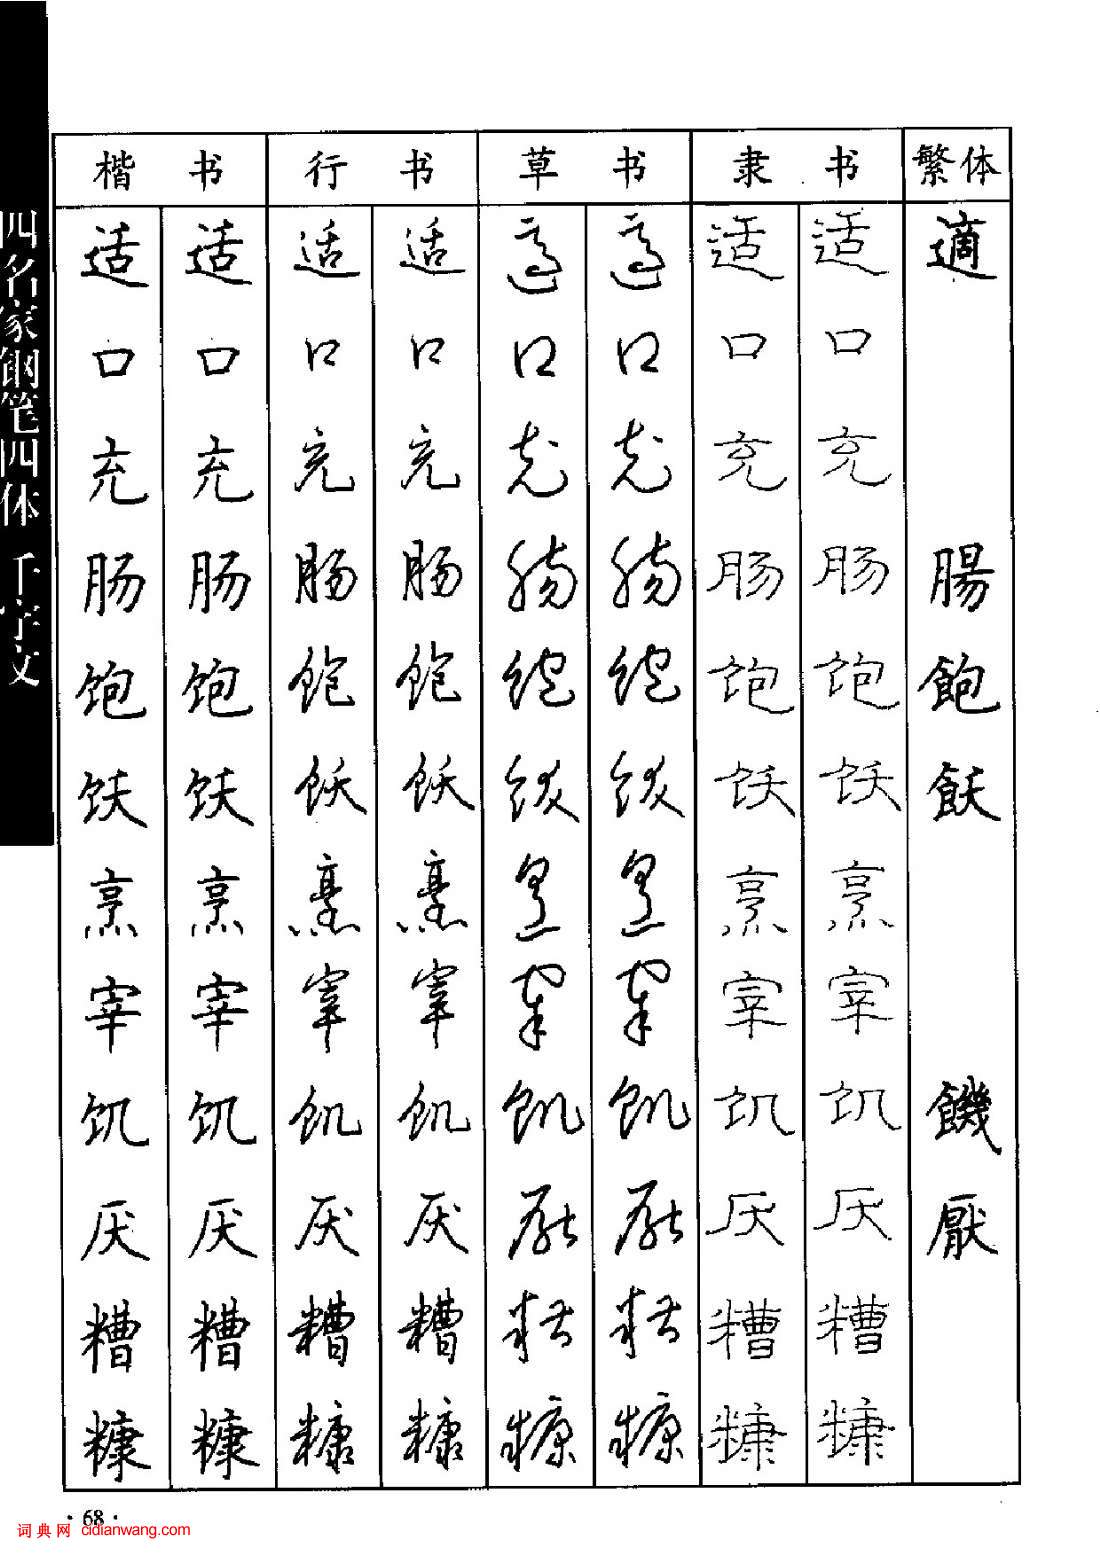 四名家钢笔四体 千字文
楷 书 行 书 草 书 隶 书 繁体
适 适 适 适 适 适 适 适 適
口 口 口 口 口 口 口 口
充 充 充 充 充 充 充 充
肠 肠 肠 肠 肠 肠 肠 肠 腸
饱 饱 饱 饱 饱 饱 饱 饱 飽
饫 饫 饫 饫 饫 饫 饫 饫 飫
烹 烹 烹 烹 烹 烹 烹 烹
宰 宰 宰 宰 宰 宰 宰 宰
饥 饥 饥 饥 饥 饥 饥 饥 饑
厌 厌 厌 厌 厌 厌 厌 厌 厭
糟 糟 糟 糟 糟 糟 糟 糟
糠 糠 糠 糠 糠 糠 糠 糠
·68·
词典网 cidianwang.com